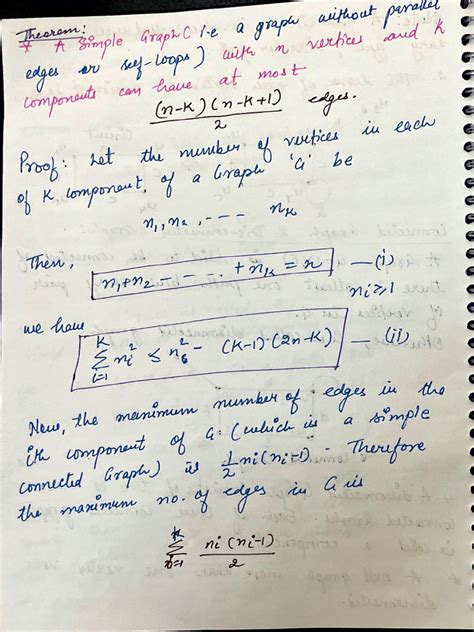 Theorem:
* A Simple Graph (i.e a graph without parallel
edges or self-loops) with n vertices and K
components can have at most
(n-K)(n-K+1)/2 edges.
Proof: Let the number of vertices in each
of K component, of a Graph 'G' be
n₁, n₂, ---- nₖ
Then,
n₁+n₂ - - - . +nₖ = n —(i)
nᵢ≥1
we have
K∑i=1 nᵢ² ≤ n² - (K-1)(2n-K) —(ii)
Now, the maximum number of edges in the
ith component of G: (which is a simple
connected Graph) is 1/2 ni(ni-1) - Therefore
the maximum no. of edges in G is
k∑i=1 ni(ni-1)/2